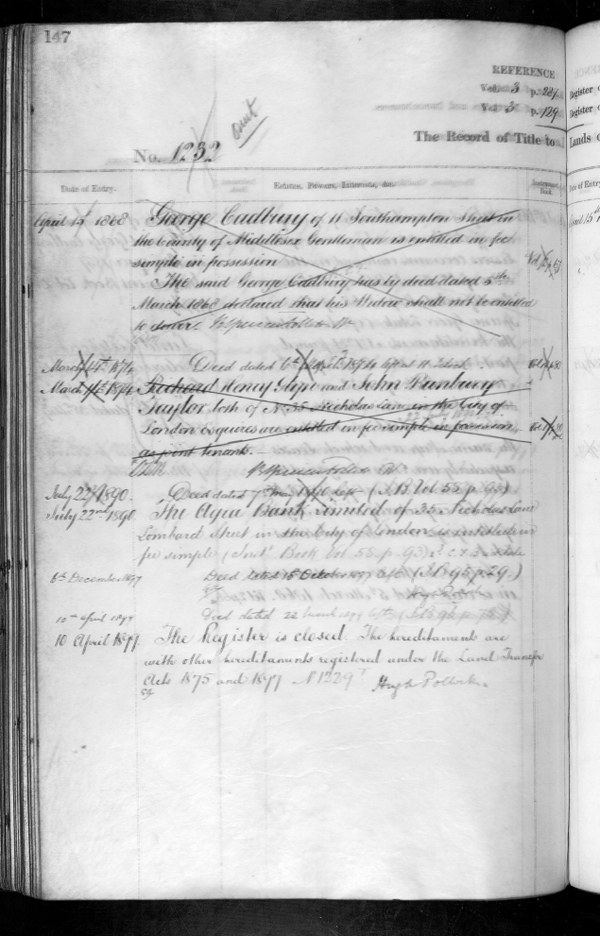 147
REFERENCE
Vol. 3 p. 284
Vol. 3 p. 129
The Record of Title to
No. 1232
Date of Entry.
Estates, Powers, Interests, &c.
April 15th 1868
George Cadbury of 11 Southampton Street in
the County of Middlesex Gentleman is entitled in fee
simple in possession
The said George Cadbury has by deed dated 5th
March 1868 declared that his Widow shall not be entitled
to dower
March 14th 1874
Deed dated 1874
March 14th 1874
Richard Henry Glyn and John Bunbury
Taylor both of No 35 Nicholas Lane in the City of
London Esquires are entitled in fee simple in possession
as joint tenants.
July 22nd 1890.
Deed dated 7th May 1890 left (I.B. Vol 55 p. 93)
July 22nd 1890
The Agra Bank limited of 35 Nicholas Lane
Lombard Street in the City of London is entitled in
fee simple (Inst. Book Vol 55 p. 93)
8th December 1897
Deed dated 15 October 1897 left (I.B 95 p. 29.)
10th April 1899
Deed dated 22 March 1899 left
10 April 1899
The Register is closed. The hereditaments are
with other hereditaments registered under the Land Transfer
Acts 1875 and 1897 No 1229
Hugh Pollock
Register
Register
Lands
Date of Entry
April 15th